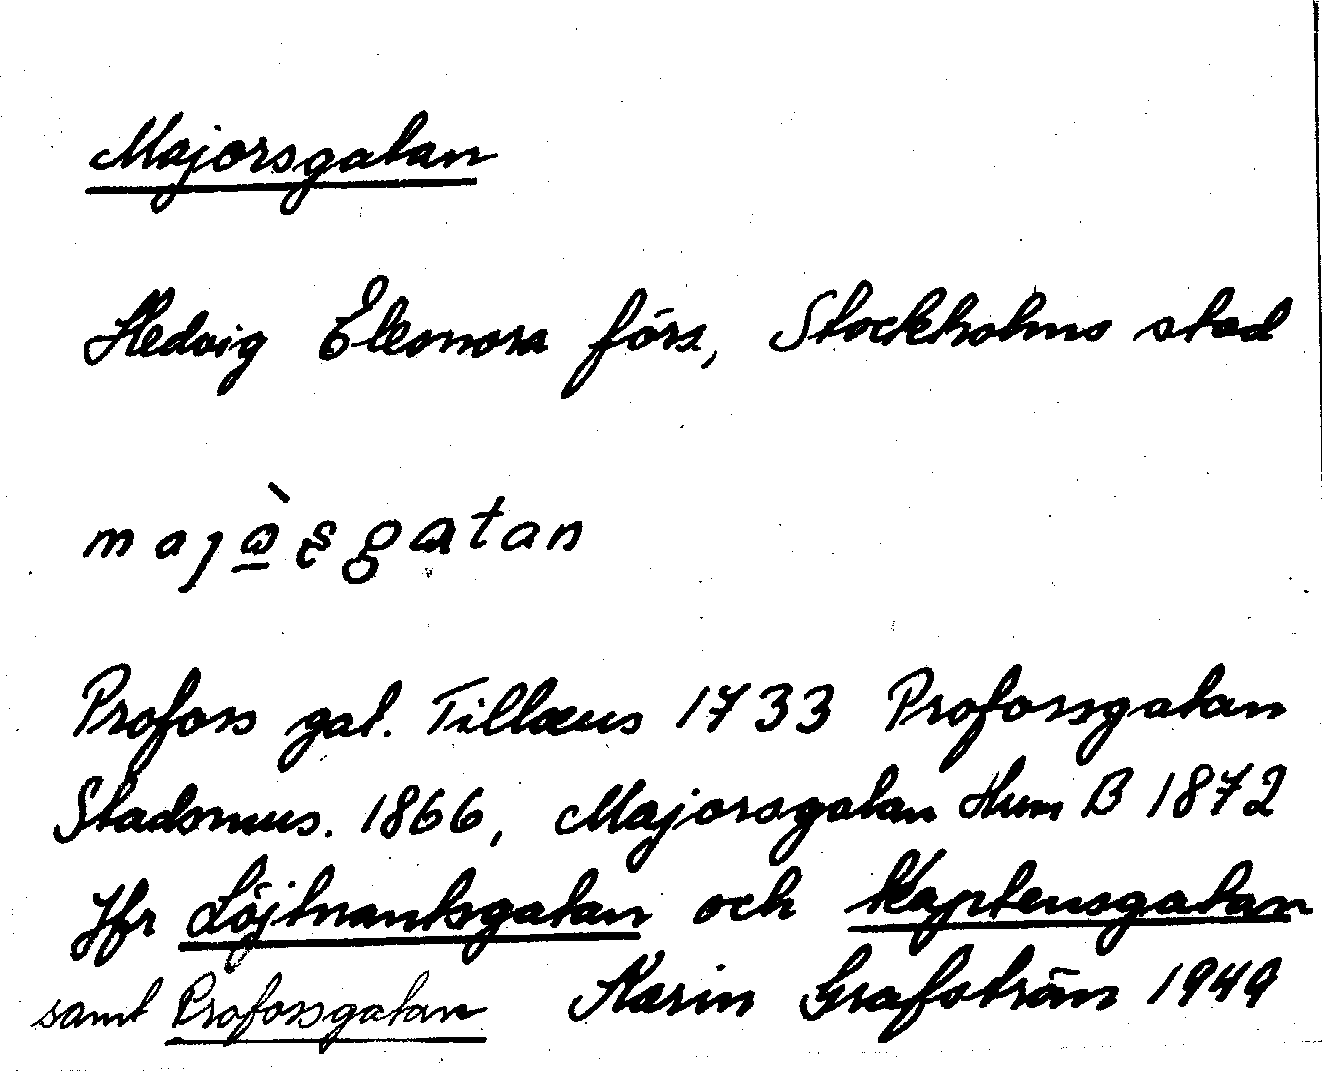 Majorsgatan
Hedvig Eleonora förs, Stockholms stad
majò̱s̨gatan
Profoss gat. Tillæus 1733 Profossgatan
Stadsmus. 1866, Majorsgatan Hum B 1872
Jfr Löjtnantsgatan och Kaptensgatan
samt Profossgatan Karin Grafström 1949